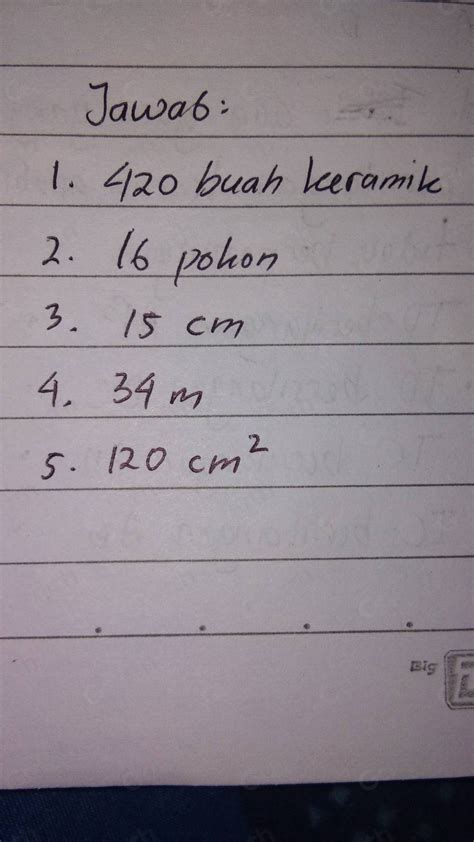 Jawab:
1. 420 buah keramik
2. 16 pohon
3. 15 cm
4. 34 m
5. 120 cm²
Big